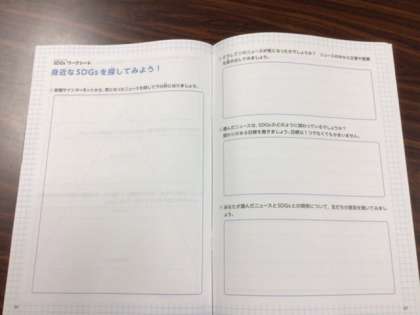 SDGs ワークシート
身近なSDGsを探してみよう！
新聞やインターネットから、気になったニュースを探して下の枠にはりましょう。
どうしてこのニュースが気になったのでしょうか？ ニュースのなかから
してみましょう。
選んだニュースは、SDGsとどのように関わっているでしょうか？
関わりのある目標を書きましょう。目標は1つでなくてもかまいません。
あなたが選んだニュースとSDGsとの関係について、友だちの意見を聞いてみまし
ょう。